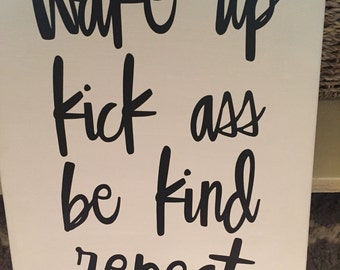 wake up
kick ass
be kind
repeat